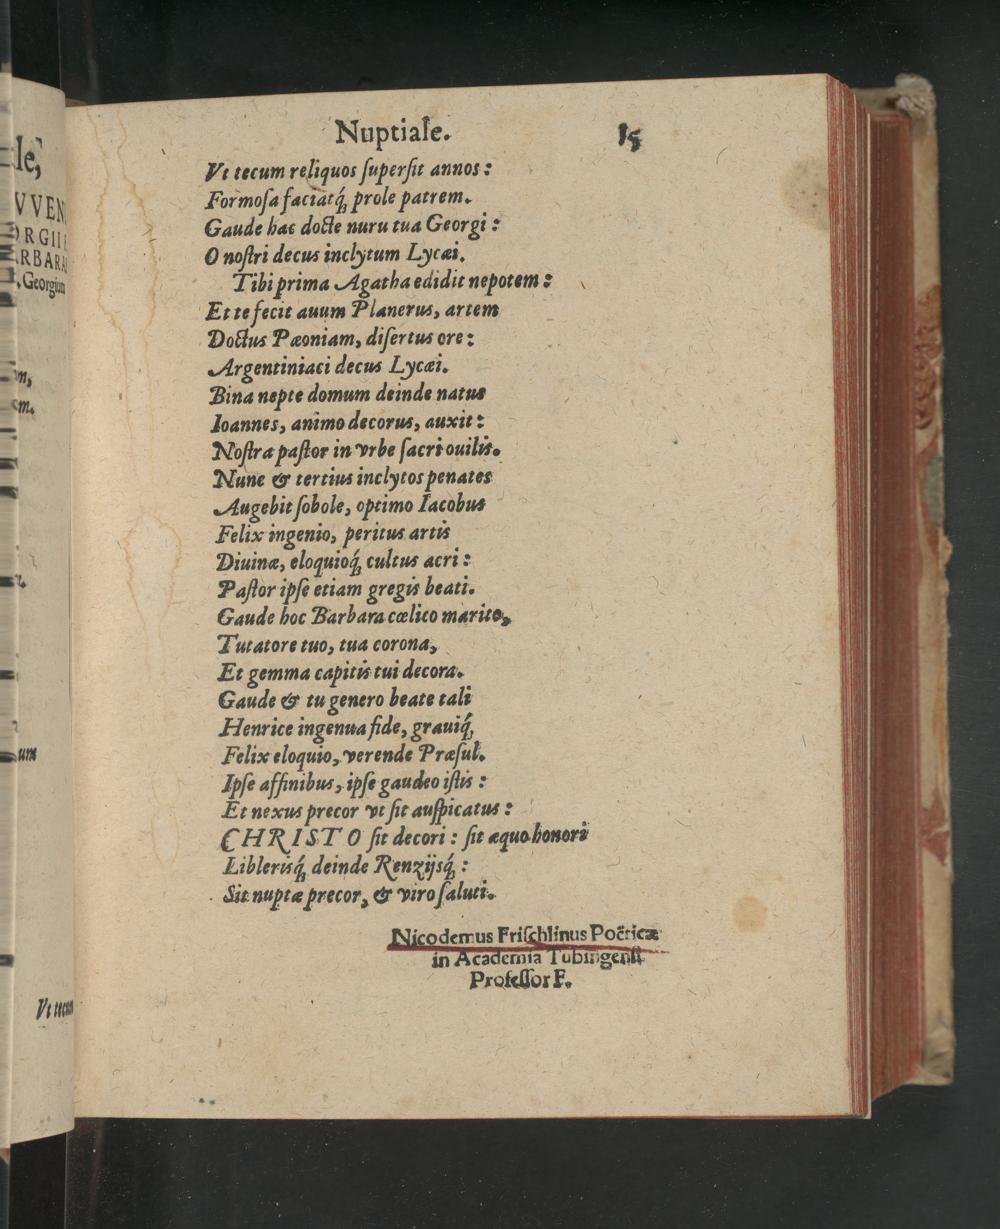 Nuptiale. 15
Vt tecum reliquos ſuperſit annos:
Formoſa faciatq́; prole patrem.
Gaude hac docte nuru tua Georgi:
O noſtri decus inclytum Lycæi.
Tibi prima Agatha edidit nepotem:
Et te fecit auum Planerus, artem
Doctus Pæoniam, diſertus ore:
Argentiniaci decus Lycæi.
Bina nepte domum deinde natus
Ioannes, animo decorus, auxit:
Noſtra paſtor in vrbe ſacri ouilis.
Nunc & tertius inclytos penates
Augebit ſobole, optimo Iacobus
Felix ingenio, peritus artis
Diuinæ, eloquioq́; cultus acri:
Paſtor ipſe etiam gregis beati.
Gaude hoc Barbara cœlico marito,
Tutatore tuo, tua corona,
Et gemma capitis tui decora.
Gaude & tu genero beate tali
Henrice ingenua fide, grauiq́;
Felix eloquio, verende Præſul.
Ipſe affinibus, ipſe gaudeo iſtis:
Et nexus precor vt ſit auſpicatus:
CHRISTO ſit decori: ſit æquo honori
Liblerisq́; deinde Renzijsq́;:
Sit nuptæ precor, & viro ſaluti.
Nicodemus Friſchlinus Poëticæ
in Academia Tubingenſi
Profeſſor F.
le,
VVEN
ORGII
RBARA
Georgium
um
Vt tecum